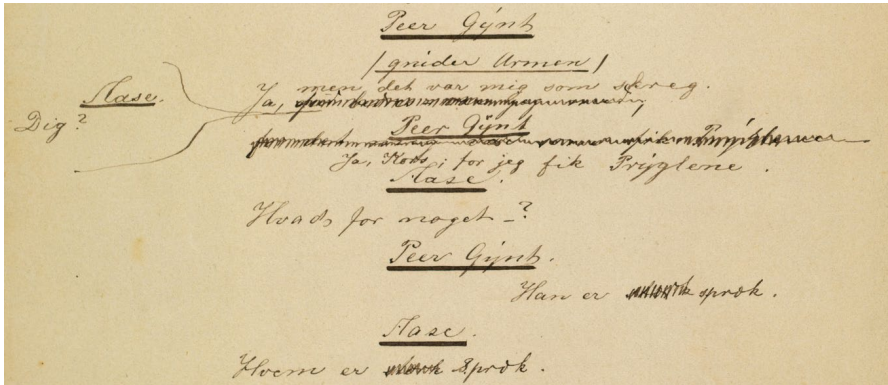 Peer Gÿnt
/ gnider Armen /
men det var mig som skreg.
Ja,
Aase.
Dig?
Peer Gÿnt
Ja, Mor, for jeg fik Prÿglene.
Aase.
Hvads for noget –?
Peer Gÿnt.
Han er spræk.
Aase.
Hvem er spræk.